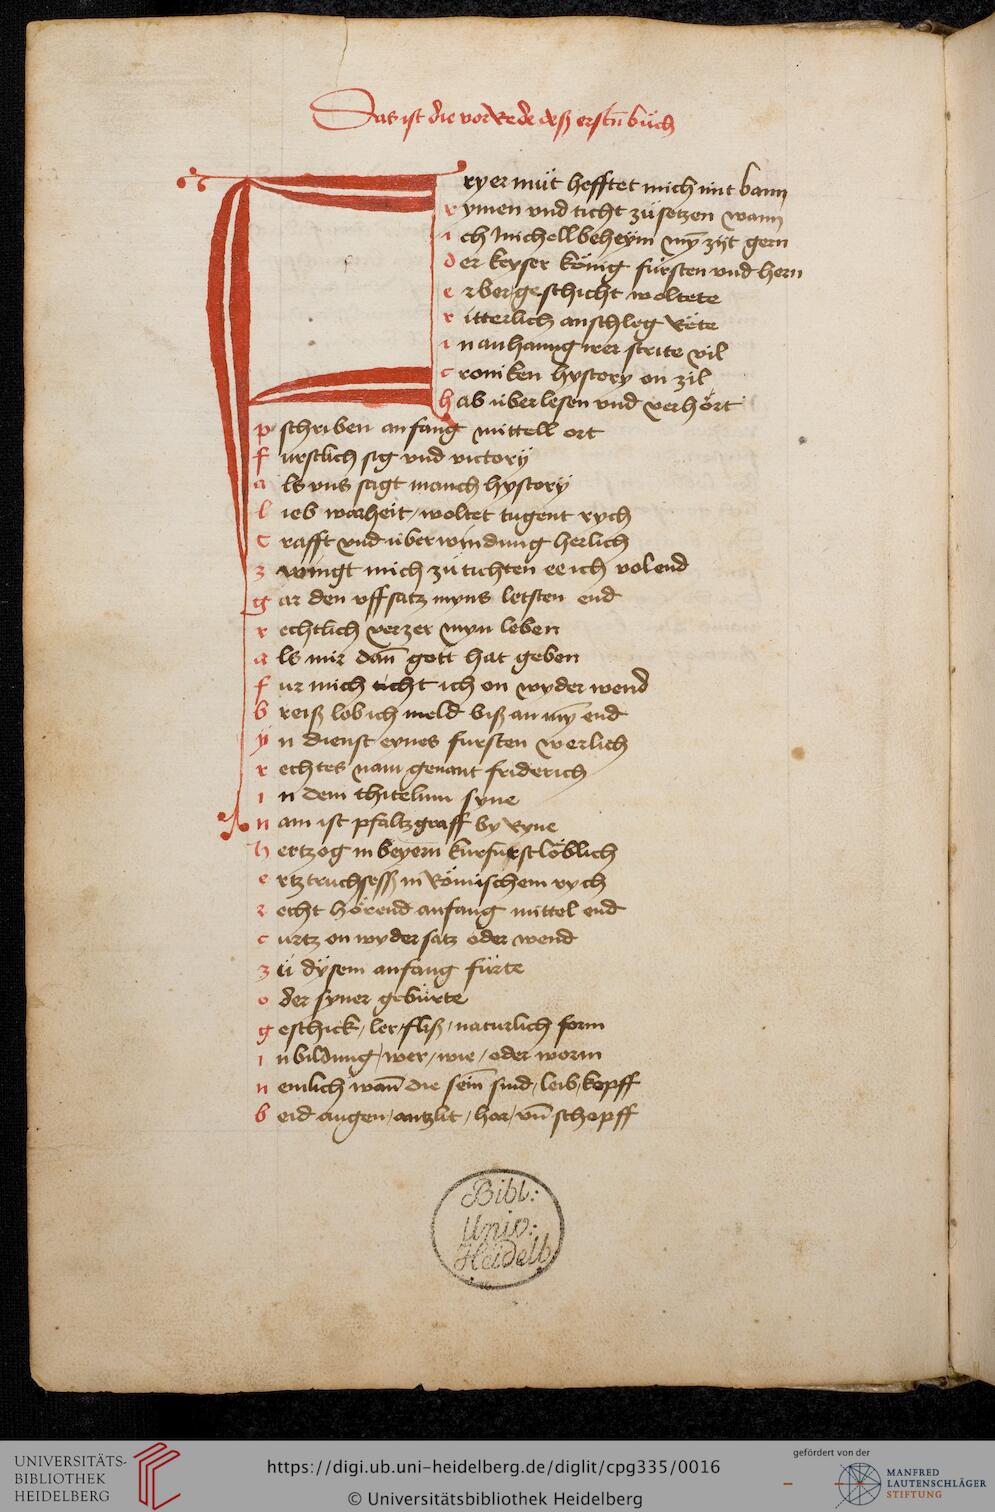 Das ist die vorRede deß erstn̄ büch
Fryer müt hefftet mich mit bann
rymen vnd ticht zü setzen wann
ich Michell beheym my̅ zijt gern
der keyser könig fürsten vnd hern
erber geschicht woltete
ritterlich anschleg Rete
in anhanng irer strite vil
croniken hystory on zil
hab überlesen vnd verhört
pschriben anfang mittell ort
furstlich sig vnd victorij
als vns sagt manch hystorij
lieb warheit / woltet tugent rych
crafft vnd überwindung herlich
zwingt mich zü tichten ee ich volend
gar den vffsatz myns letsten end
rechtlich verzer myn leben
als mir dan̄ gott hat geben
fur mich ticht ich on wyder wend
breiß lob ich meld biß an my̅ end
ÿn dienst eynes fursten werlich
rechtes nam genant friderich
in dem thitelum syne
nam ist pfaltzgraff by Ryne
hertzog in beyern kurfürst löblich
ertztruchsess in Römischem rych
recht hörend anfang mittel end
curtz on wyder satz oder wend
zü dÿsem anfang fürte
oder syner gebürte
geschick / ler / fliß / naturlich form
in bildung / wer / wie / oder worm
nemlich wan̄ die sein̄ sind / leib / kopff
beid augen / antzlit / har / vn̄ schopff
Bibl:
Univ:
Heidelb
UNIVERSITÄTS-
BIBLIOTHEK
HEIDELBERG
https://digi.ub.uni-heidelberg.de/diglit/cpg335/0016
© Universitätsbibliothek Heidelberg
gefördert von der
MANFRED
LAUTENSCHLÄGER
STIFTUNG